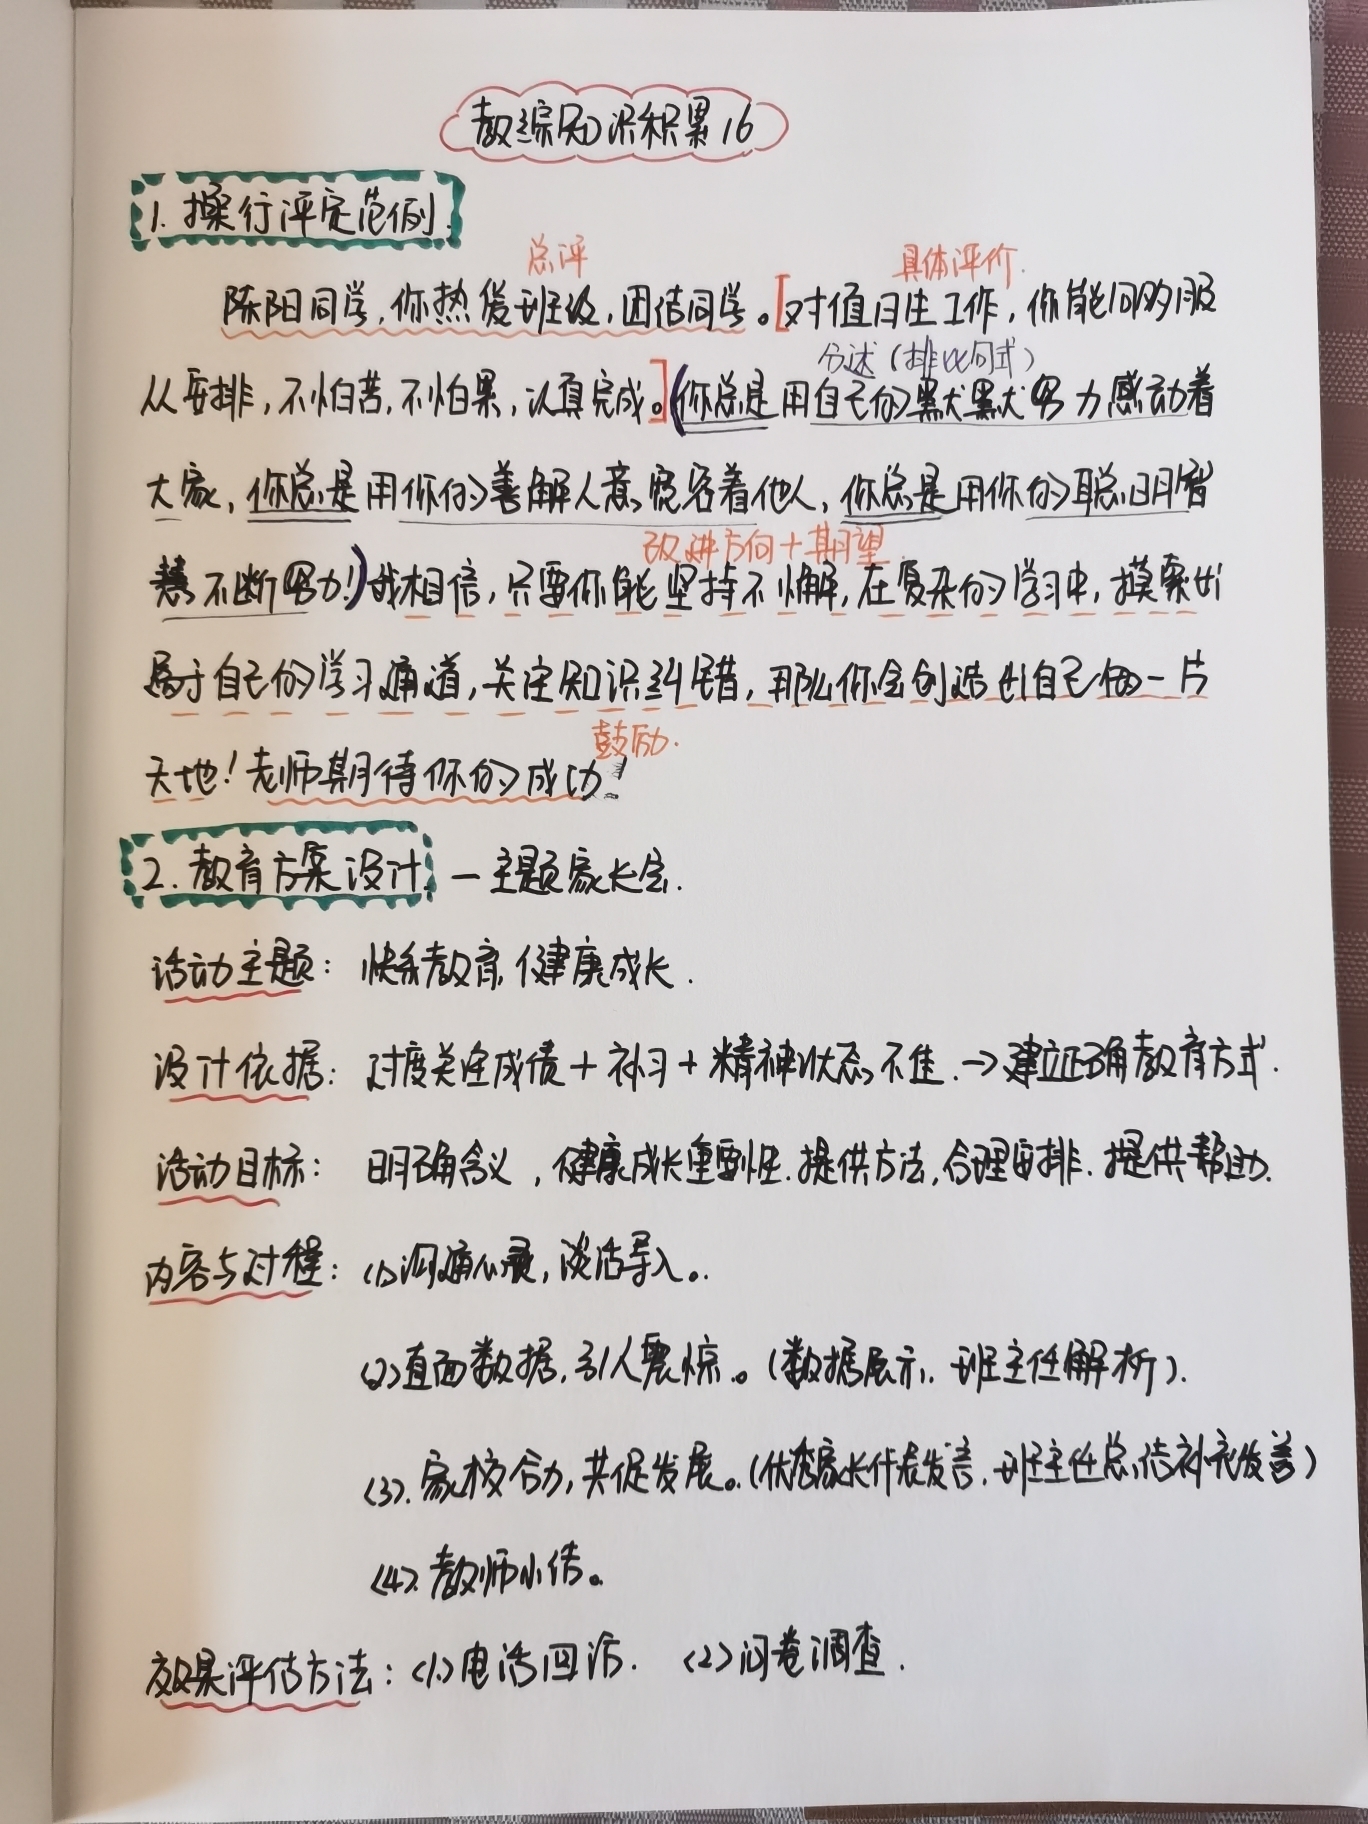 教综知识积累16
1. 操行评定范例
总评 具体评价.
陈阳同学，你热爱班级，团结同学。[对值日生工作，你能同购服
分述（排比句式）
从安排，不怕苦，不怕累，认真完成。](你总是用自己的默默努力感动着
大家，你总是用你的善解人意宽容着他人，你总是用你的聪明智
改进方向+期望
慧不断努力！)我相信，只要你能坚持不懈，在复杂的学习中，摸索出
属于自己的学习通道，关注知识纠错，那么你会创造出自己的一片
鼓励.
天地！老师期待你的成功！
2. 教育方案设计 — 主题家长会.
活动主题： 快乐教育，健康成长.
设计依据： 过度关注成绩+补习+精神状态不佳.→建立正确教育方式.
活动目标： 明确含义，健康成长重要性.提供方法，合理安排.提供帮助.
内容与过程：(1)沟通心灵，谈话导入。
(2)直面数据，引人震惊。(数据展示.班主任解析).
(3).家校合力，共促发展。(优秀家长代表发言，班主任总结补充发言)
(4).教师小结。
效果评估方法：(1)电话回访. (2)问卷调查.